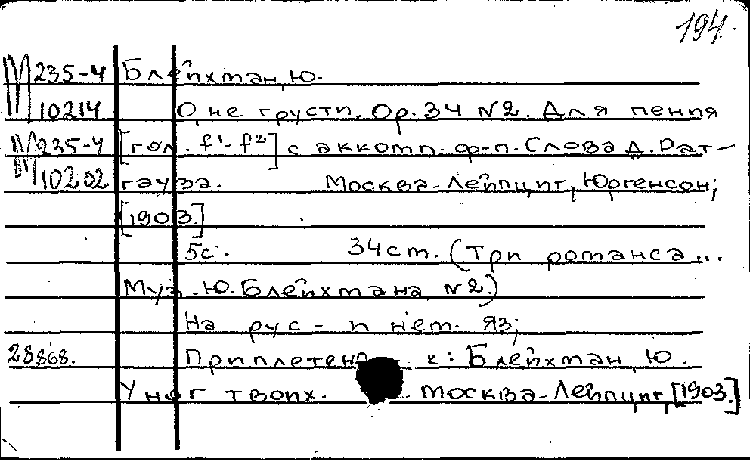 194.
М 235-4 Блейхман, Ю.
М 10214 О, не грусти. Op. 34 №2. Для пения
М 235-4 [гол. f¹-f²] с аккомп. ф-п. Слова Д. Рат-
М 10202 гауза. Москва-Лейпциг, Юргенсон;
[1903.]
5с. 34 см. (Три романса...
Муз. Ю. Блейхмана №2)
На рус- и нем. яз;
28868. Приплетено к: Блейхман, Ю.
У ног твоих. Москва-Лейпциг, [1903.]